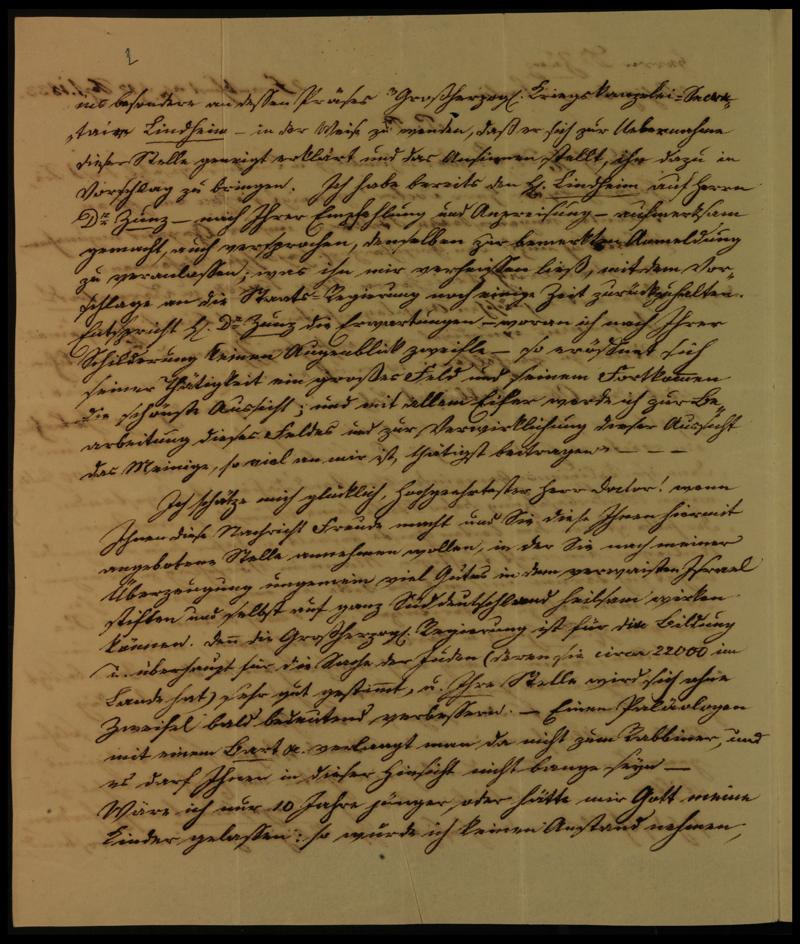 2
insbesondere an dessen Präses Großherzogl. Kriegskanzelei-Secre-
taire Lindheim – in der Weise zu wenden, daß er sich zur Uebernahme
dieser Stelle geneigt erklärt und das Ansinnen stellt, ihn dazu in
Vorschlag zu bringen. Ich habe bereits den H. Lindheim auf Herrn
Dr. Zunz – nach Ihrer Empfehlung und Anpreisung – aufmerksam
gemacht, auch versprochen, denselben zur bemerkten Anmeldung
zu veranlassen; was ihn mir verheißen ließ, mit dem Vor-
schlage an die Staats-Regierung noch einige Zeit zurückzuhalten.
Entspricht H. Dr. Zunz die Erwartungen – woran ich nach Ihrer
Schilderung keinen Augenblick zweifle – so eröffnet sich
seiner Thätigkeit ein großes Feld und seinem Fortkommen
die schönste Aussicht; und mit allem Eifer werde ich zur Be-
arbeitung dieses Feldes und zur Verwirklichung dieser Aussicht
das Meinige, so viel an mir ist, thätigst beitragen. – – –
Ich schätze mich glücklich, hochgeehrtester Herr Doctor! wenn
Ihnen diese Nachricht Freude macht und Sie diese Ihnen hiermit
angebotene Stelle annehmen wollen, in der Sie nach meiner
Überzeugung ungemein viel Gutes in dem verwaisten Israel
stiften und selbst auf ganz Süddeutschland heilsam wirken
können. Denn die Großherzogl. Regierung ist für die Bildung
u. überhaupt für die Sache der Juden (deren sie circa 22000 im
Lande hat) sehr gut gestimmt, u. Ihre Stelle wird sich ohne
Zweifel bald bedeutend verbessern. – Einen Paläologen
mit einem Bart &. verlangt man da nicht zum Rabbiner, und
es darf Ihnen in dieser Hinsicht nicht bange seyn –
Wäre ich nur 10 Jahre jünger, oder hätte mir Gott meine
Kinder gelassen: so würde ich keinen Anstand nehmen,